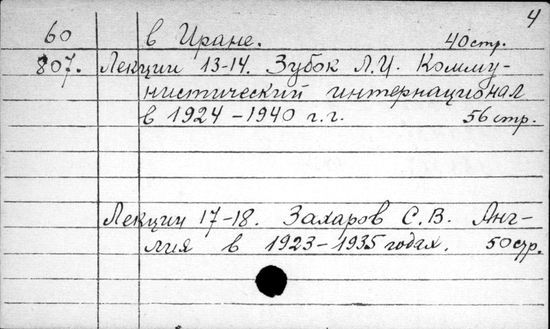 4
60 в Иране. 40 стр.
807. Лекции 13-14. Зубок Л.И. Комму-
нистический интернационал
в 1924-1940 г.г. 56 стр.
Лекции 17-18. Захаров С.В. Анг-
лия в 1923-1935 годах. 50 стр.